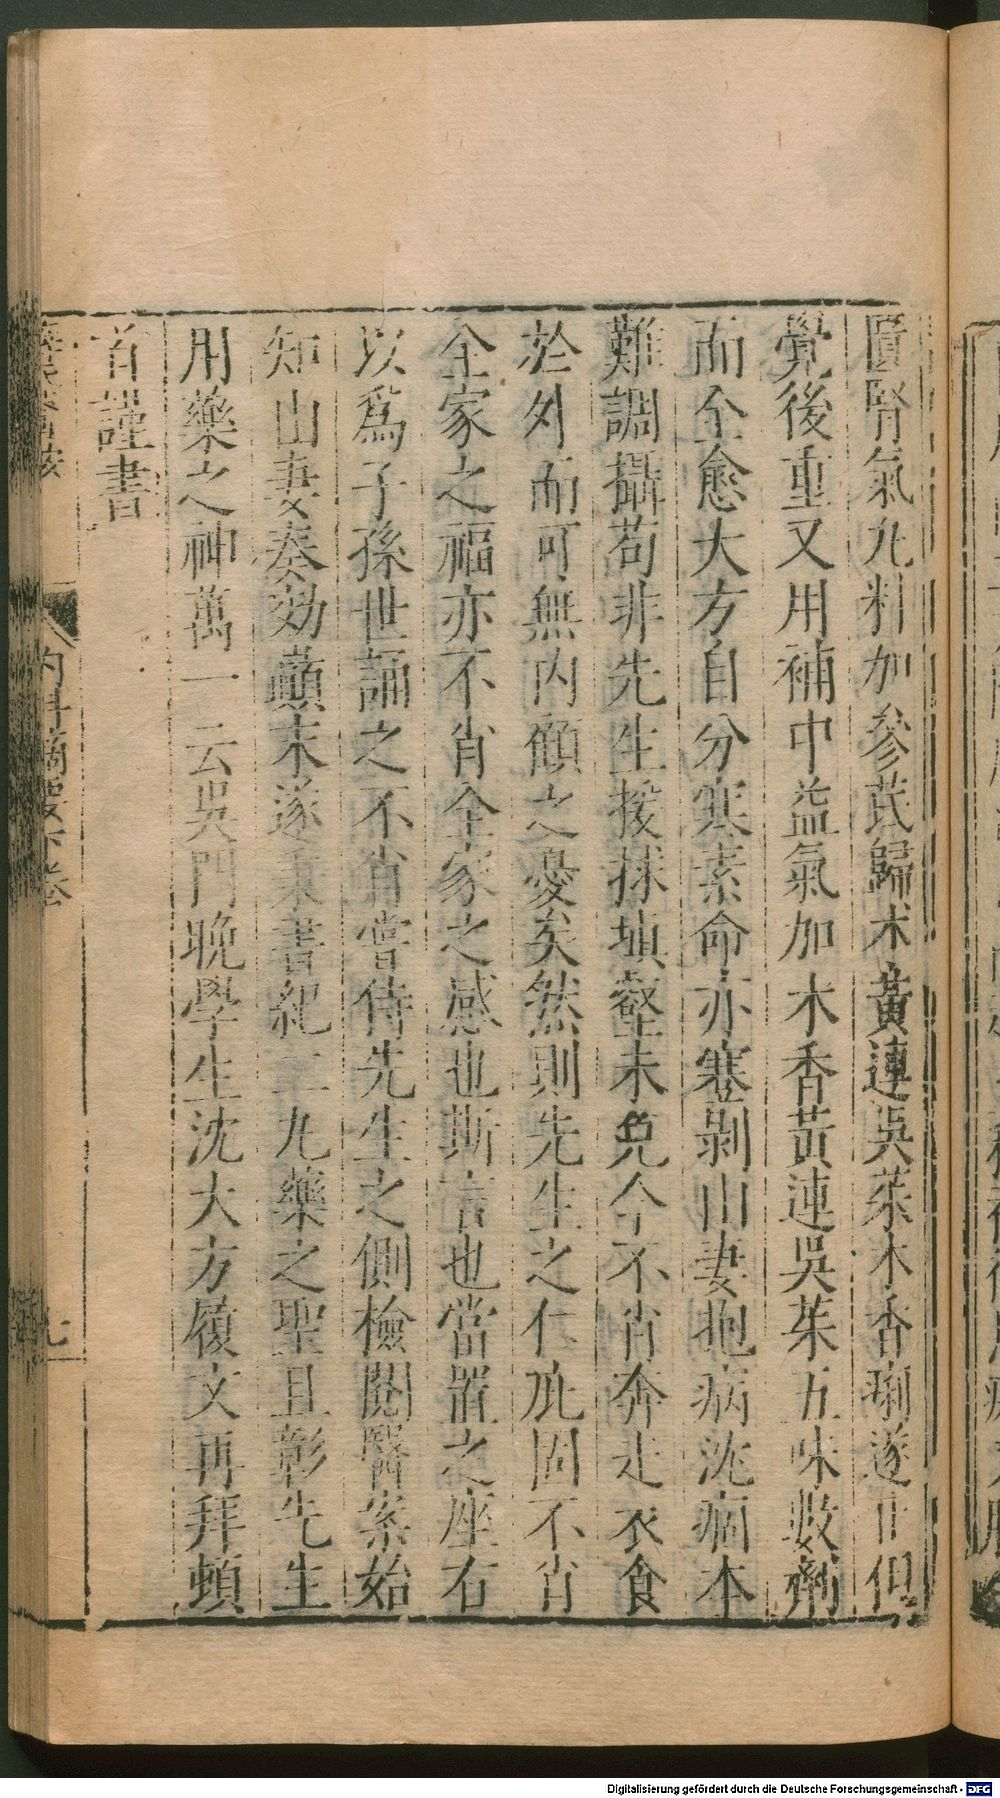 匱腎氣丸料加參芪歸术黃連吳茱木香痢遂止但
覺後重又用補中益氣加木香黃連吳茱五味數劑
而全愈大方自分寒素命亦蹇剝山妻抱病沈痼本
難調攝苟非先生援拯塡壑未免今不肖奔走衣食
於外而可無內顧之憂矣然則先生之仁庇固不肖
全家之福亦不肖全家之感也斯言也當置之座右
以爲子孫世誦之不肖嘗侍先生之側檢閱醫案始
知山妻奏効顚末遂秉書紀二九藥之聖且彰先生
用藥之神萬一云吳門晚學生沈大方履文再拜頓
首謹書
內科摘要下卷
七
Digitalisierung gefördert durch die Deutsche Forschungsgemeinschaft - DFG